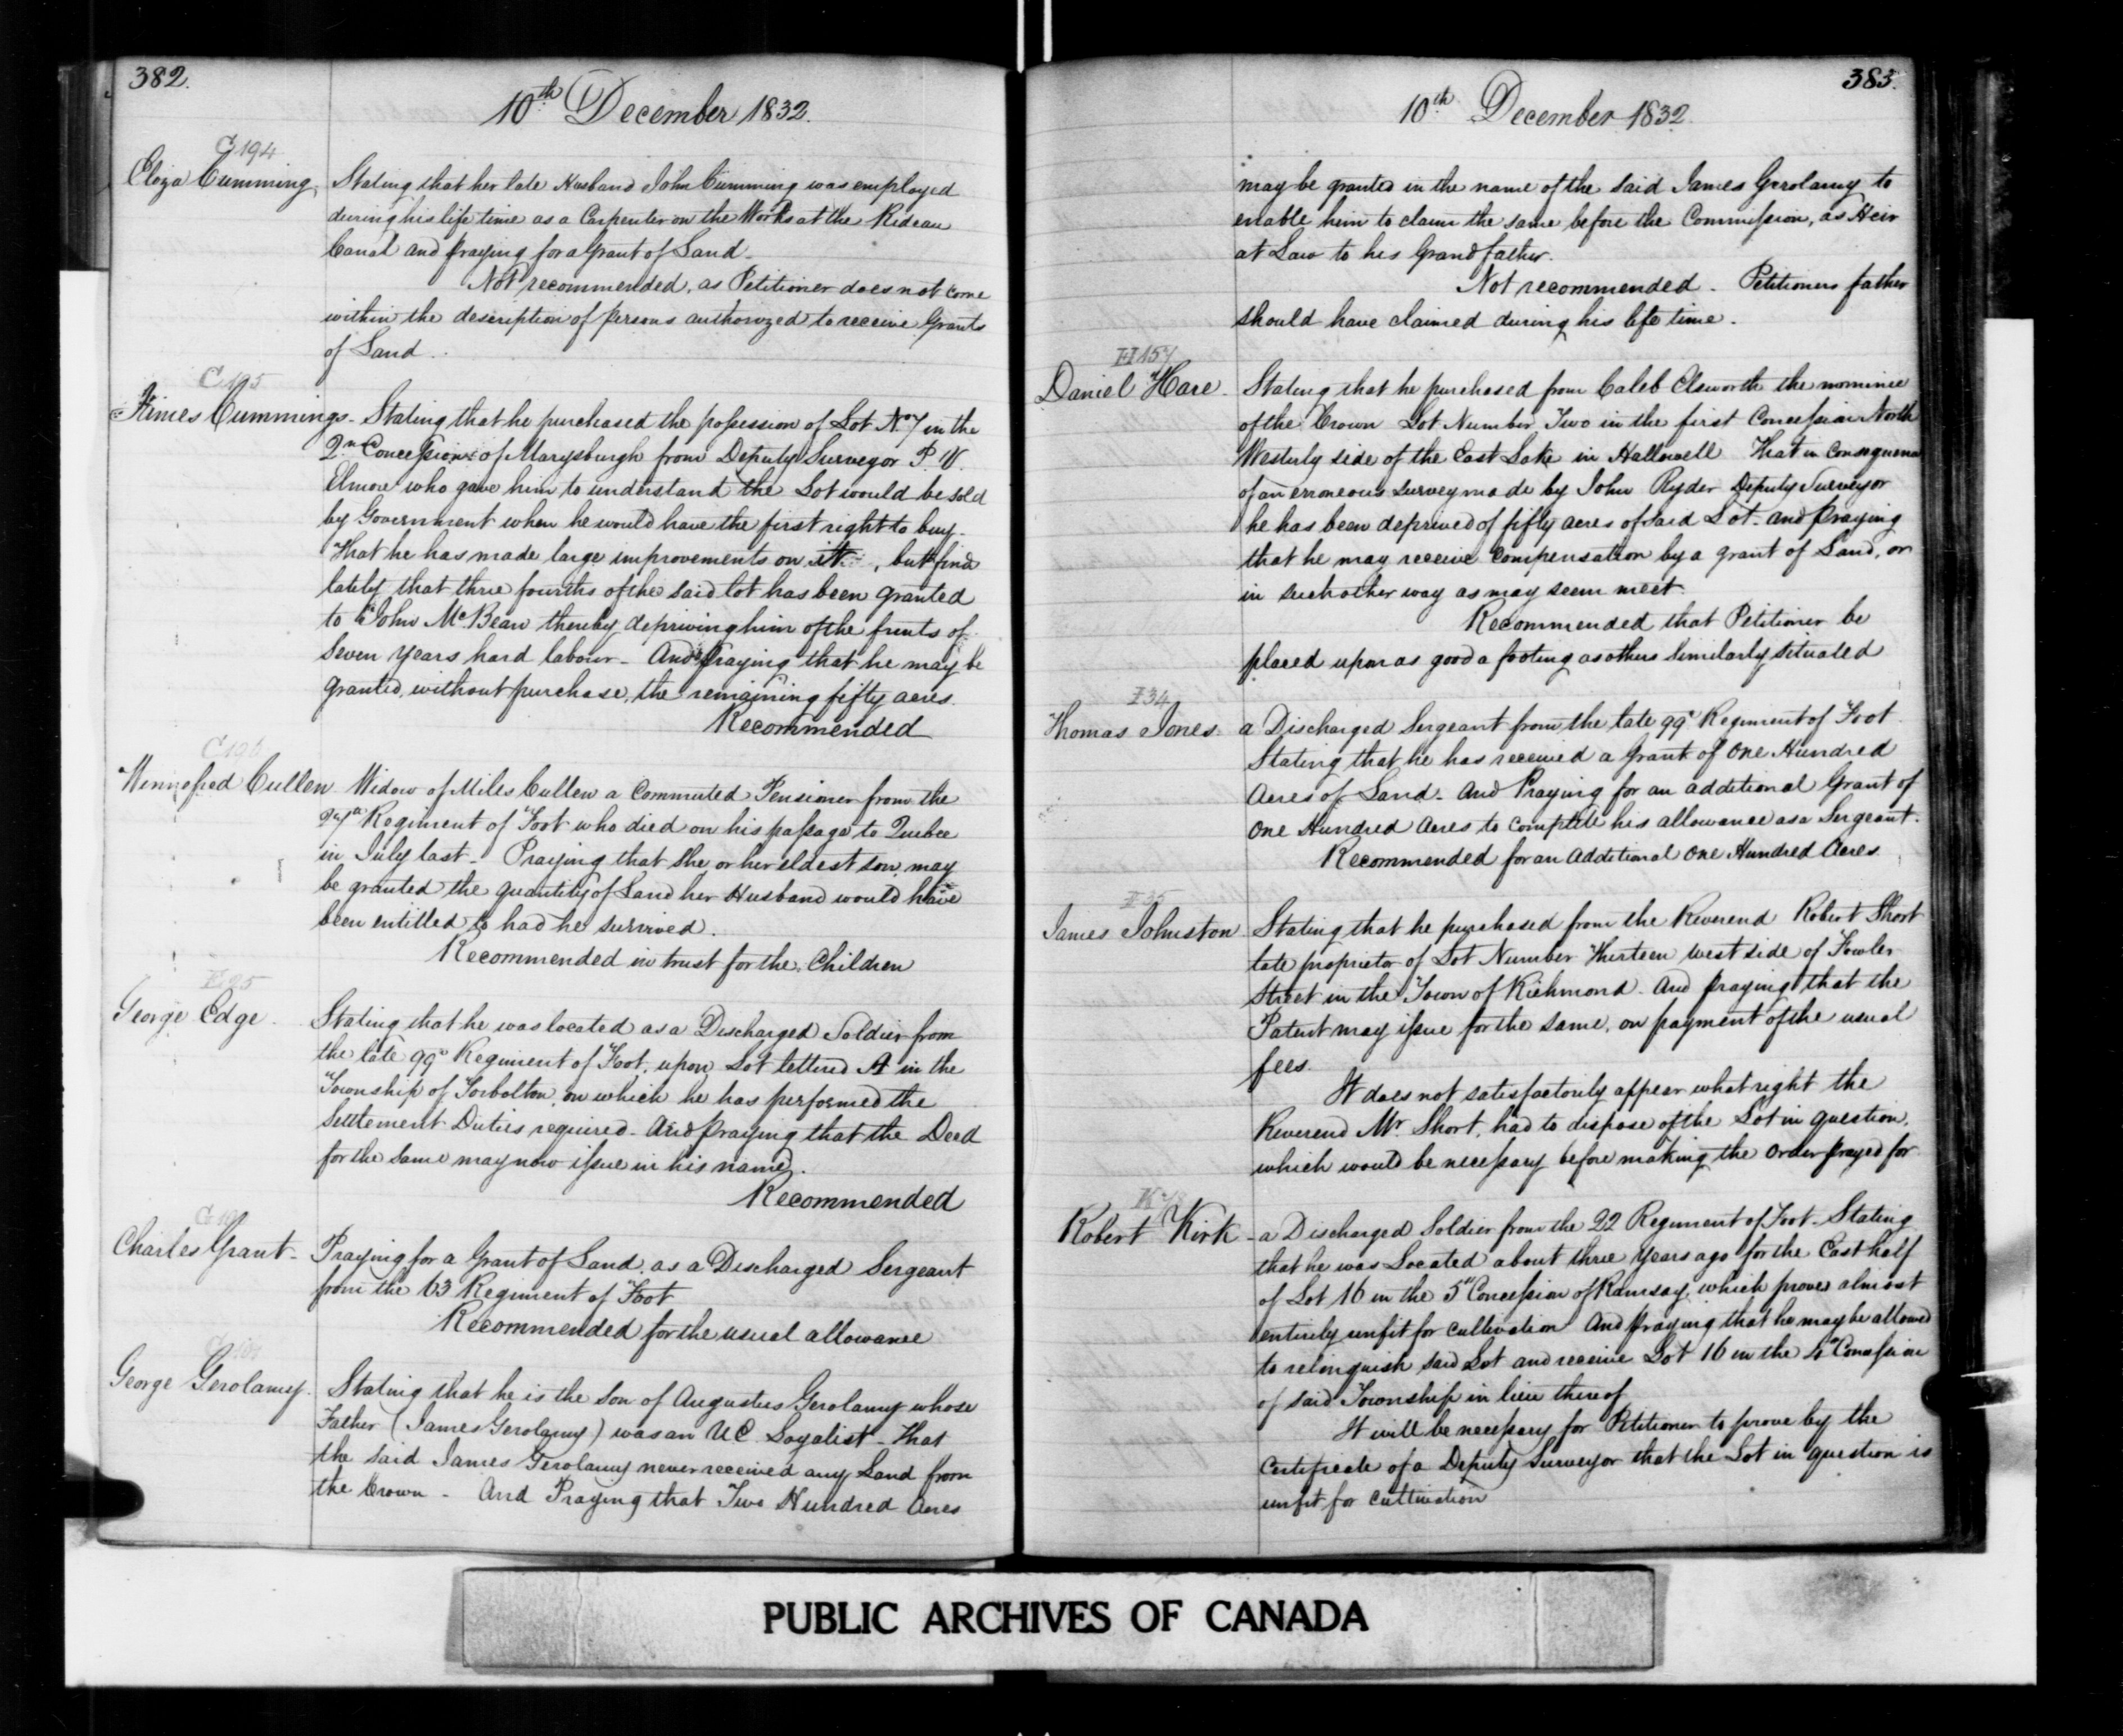 382.
10th December 1832.
C 194
Eliza Cumming,
Stating that her late Husband John Cumming was employed
during his life time as a Carpenter on the Works at the Rideau
Canal and praying for a Grant of Land _
Not recommended, as Petitioner does not come
within the description of persons authorized to receive Grants
of Land.
C 195
James Cummings _ Stating that he purchased the possession of Lot No 7 in the
2nd Concession of Marysburgh from Deputy Surveyor P. V.
Elmore who gave him to understand the Lot would be sold
by Government when he would have the first right to buy _
That he has made large improvements on it, but finds
lately that three fourths of the said lot has been granted
to John McBean thereby depriving him of the fruits of
seven years hard labour _ And Praying that he may be
granted, without purchase, the remaining fifty acres.
Recommended
C 196
Winnefred Cullen Widow of Miles Cullen a Commuted Pensioner from the
27th Regiment of Foot who died on his passage to Quebec
in July last _ Praying that she, or her eldest son, may
be granted the quantity of Land her Husband would have
been entitled to had he survived.
Recommended in trust for the Children
E 25
George Edge.
Stating that he was located as a Discharged Soldier from
the late 99th Regiment of Foot, upon Lot lettered A in the
Township of Torbolton, on which he has performed the
Settlement Duties required _ And praying that the Deed
for the same may now issue in his name.
Recommended
Charles Grant _
Praying for a Grant of Land, as a Discharged Sergeant
from the 63 Regiment of Foot
Recommended for the usual allowance
George Gerolamy.
Stating that he is the Son of Augustus Gerolamy whose
Father (James Gerolamy) was an UE Loyalist _ That
the said James Gerolamy never received any Land from
the Crown _ And Praying that Two Hundred Acres
383.
10th December 1832.
may be granted in the name of the said James Gerolamy to
enable him to claim the same before the Commission, as Heir
at Law to his Grandfather.
Not recommended _ Petitioners father
should have claimed during his life time.
H 157
Daniel Hare _
Stating that he purchased from Caleb Elsworth the nominee
of the Crown Lot Number Two in the first Concession North
Westerly side of the East Lake in Hallowell That in Consequence
of an erroneous survey made by John Ryder Deputy Surveyor
he has been deprived of fifty acres of said Lot _ and Praying
that he may receive Compensation by a grant of Land, or
in such other way as may seem meet
Recommended that Petitioner be
placed upon as good a footing as others Similarly situated
I 34
Thomas Jones
a Discharged Sergeant from the late 99th Regiment of Foot
Stating that he has received a Grant of One Hundred
Acres of Land _ And Praying for an additional Grant of
One Hundred Acres to Complete his allowance as a Sergeant.
Recommended for an Additional One Hundred Acres.
I 35
James Johnston
Stating that he purchased from the Reverend Robert Short
late proprietor of Lot Number Thirteen West side of Fowler
Street in the Town of Richmond _ And praying that the
Patent may issue for the same, on payment of the usual
fees.
It does not satisfactorily appear what right the
Reverend Mr. Short, had to dispose of the Lot in question,
which would be necessary before making the Order prayed for
Robert Kirk _
a Discharged Soldier from the 22 Regiment of Foot _ Stating
that he was Located about three Years ago for the East half
of Lot 16 in the 5th Concession of Ramsay, which proves almost
entirely unfit for Cultivation And Praying that he may be allowed
to relinquish said Lot and receive Lot 16 in the 4th Concession
of said Township in lieu thereof
It will be necessary for Petitioner to prove by the
Certificate of a Deputy Surveyor that the Lot in question is
unfit for Cultivation
PUBLIC ARCHIVES OF CANADA